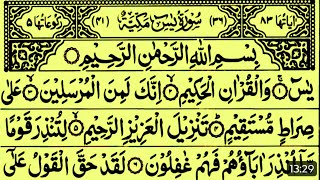 اٰیَاتُهَا ۸۳ (۳۶) سُوْرَةُ يٰسٓ مَكِّيَّةٌ (۴۱) رُكُوْعَاتُهَا ۵
بِسْمِ اللّٰهِ الرَّحْمٰنِ الرَّحِيْمِ
يٰسٓ وَالْقُرْاٰنِ الْحَكِيْمِ اِنَّكَ لَمِنَ الْمُرْسَلِيْنَ عَلٰى
صِرَاطٍ مُّسْتَقِيْمٍ تَنْزِيْلَ الْعَزِيْزِ الرَّحِيْمِ لِتُنْذِرَ قَوْمًا
مَّاۤ اُنْذِرَ اٰبَآؤُهُمْ فَهُمْ غٰفِلُوْنَ لَقَدْ حَقَّ الْقَوْلُ عَلٰۤى
13:29